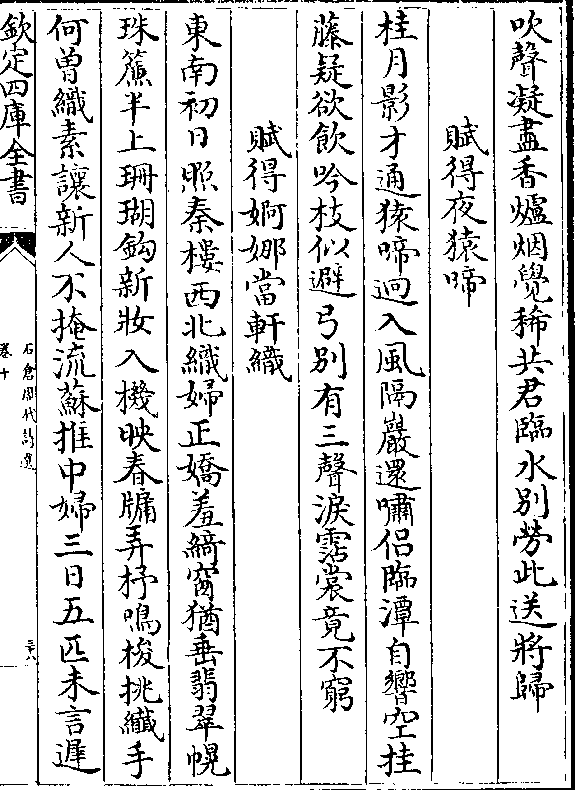 吹聲凝盡香爐烟覺稀共君臨水別勞此送將歸
賦得夜猿啼
桂月影才通猿啼迥入風隔巖還嘯侣臨潭自響空挂
藤疑欲飲吟枝似避弓別有三聲淚霑裳竟不窮
賦得婀娜當軒織
東南初日照秦樓西北織婦正嬌羞綺窗猶垂翡翠幌
珠簾半上珊瑚鈎新妝入機映春牖弄杼鳴梭挑纖手
何曽織素讓新人不掩流蘇推中婦三日五匹未言遲
欽定四庫全書
石倉歷代詩選
卷十
三八